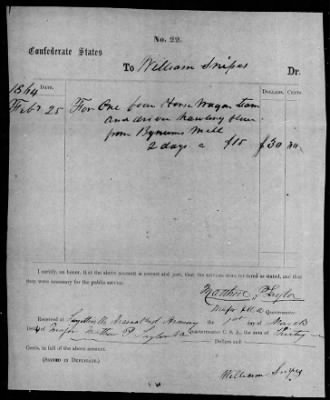 No. 22.
Confederate States
To William Snipes Dr.
DOLLARS. CENTS.
1864
Feby 25 For One four Horse Wagon team
and driver hauling flour
from Bynums Mill
2 days a $15 $30 00
I certify, on honor, that the above account is correct and just; that the services were rendered as stated, and that
they were necessary for the public service.
Matthew P Taylor
Major & Quartermaster.
Received at Fayetteville Arsenal and Armory the of March
1864 of Major Matthew P. Taylor Quartermaster C. S. A., the sum of Thirty
Dollars and
Cents, in full of the above account.
(SIGNED IN DUPLICATE.)
William Snipes